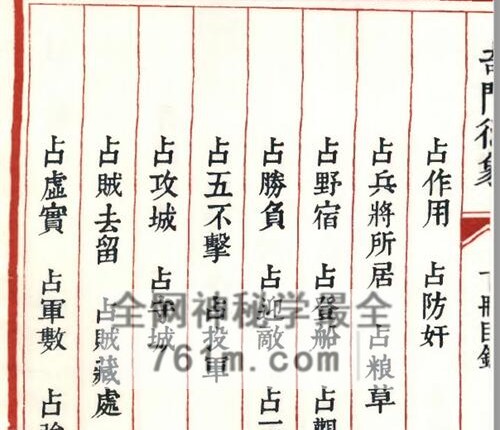 奇門
冊目錄
占作用 占防奸
占兵將所居 占粮草
占野宿 占登船 占觀
占勝負 占迎敵 占
占五不擊 占投軍
占攻城 占守城
占賊去留 占賊藏處
占虛實 占軍數 占
全网神秘学最全
761m.com